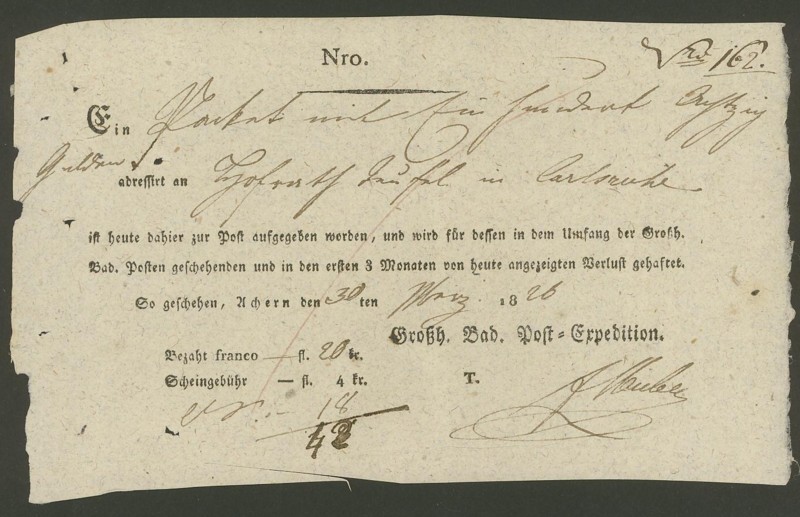 Nro. 162.
Ein Packet mit Ein hundert Achtzig
Gulden
adressirt an Hofrath Teufel in Carlsruhe
ist heute dahier zur Post aufgegeben worden, und wird für dessen in dem Umfang der Großh.
Bad. Posten geschehenden und in den ersten 3 Monaten von heute angezeigten Verlust gehaftet.
So geschehen, Achern den 30 ten März 1826
Großh. Bad. Post-Expedition.
Bezaht franco — fl. 20 kr.
Scheingebühr — fl. 4 kr. T.
18
42